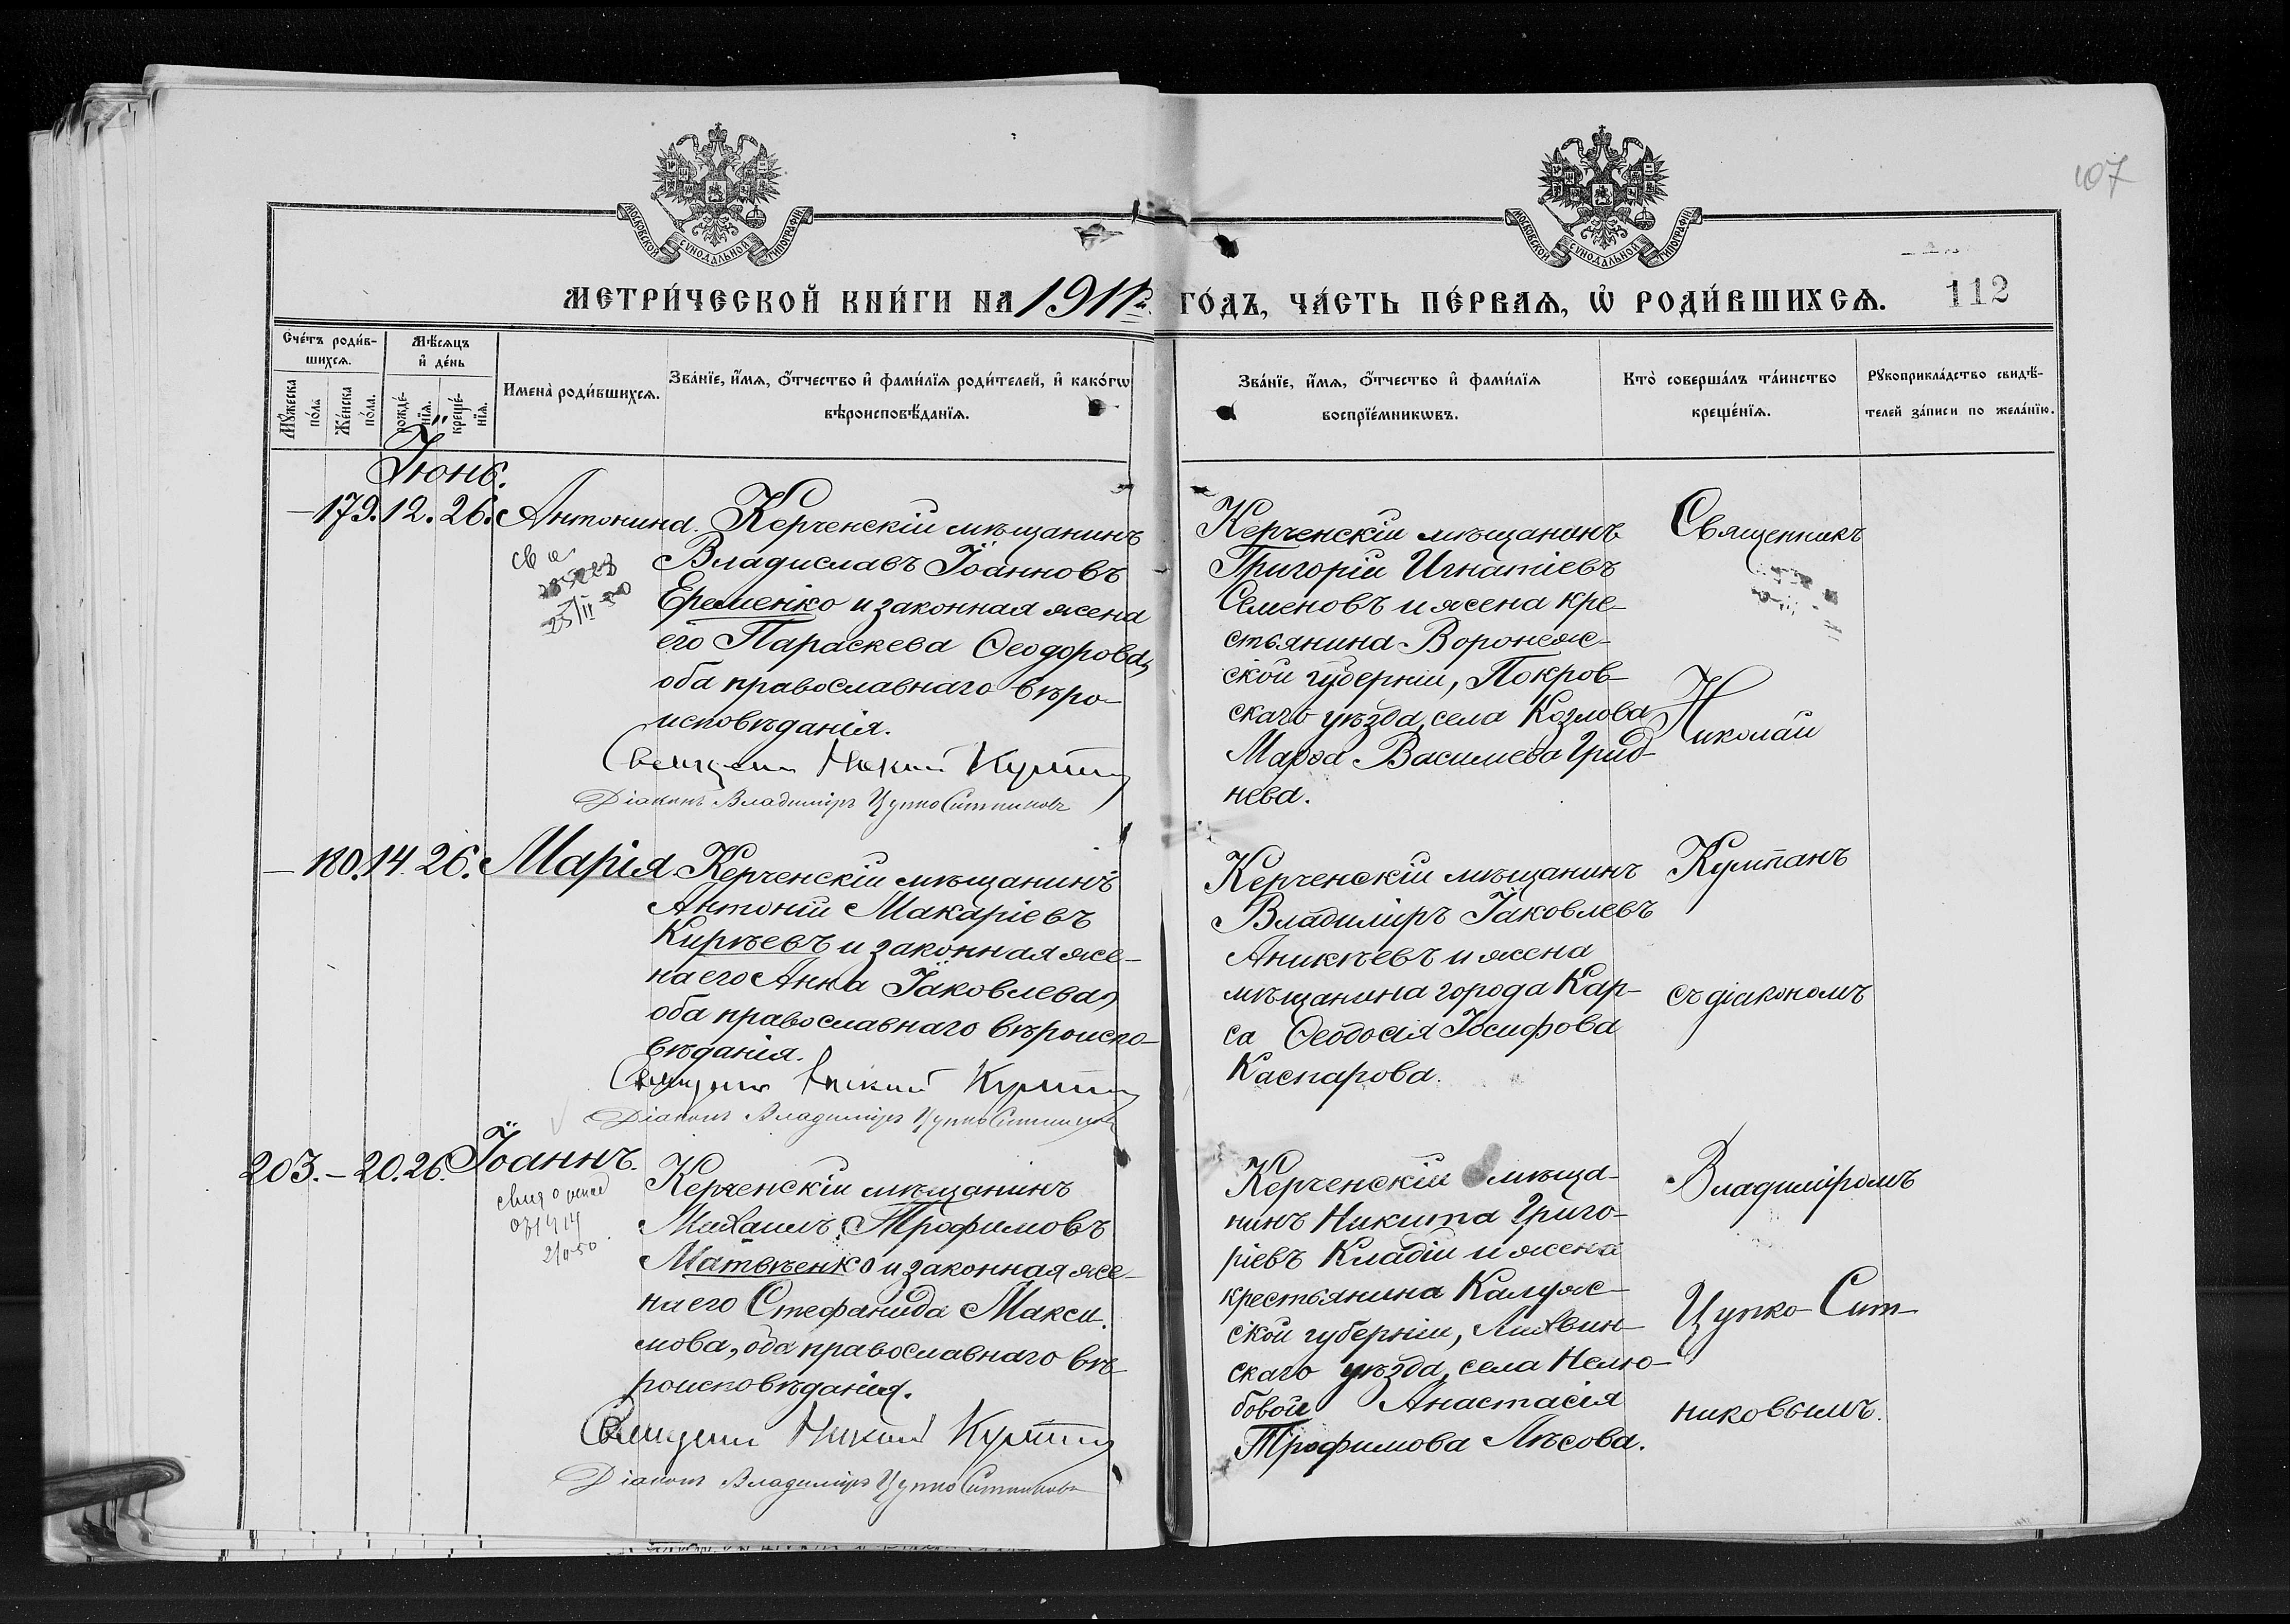 107
МОСКОВСКОЙ СѴНОДАЛЬНОЙ ТИПОГРАФІИ
МОСКОВСКОЙ СѴНОДАЛЬНОЙ ТИПОГРАФІИ
МЕТРИ́ЧЕСКОЙ КНИ́ГИ НА 1911 ГО́ДЪ, ЧА́СТЬ ПЕ́РВАѦ, Ѡ҆ РОДИ́ВШИХСѦ. 112
Сче́тъ роди́в-
шихсѧ.
Мꙋ́жеска
по́ла
Же́нска
по́ла.
Мѣ́сѧцъ
и҆ де́нь
рожде́-
нїѧ.
креще́-
нїѧ.
Имена̀ роди́вшихсѧ.
Зва́нїе, и҆́мѧ, ѻ҆́тчество и҆ фами́лїѧ роди́телей, и҆ како́гѡ
вѣроисповѣ́данїѧ.
Зва́нїе, и҆́мѧ, ѻ҆́тчество и҆ фами́лїѧ
воспрїе́мникѡвъ.
Кто̀ соверша́лъ та́инство
креще́нїѧ.
Рꙋкоприкла́дство свидѣ́-
телей за́писи по жела́нїю.
Іюнь.
— 179. 12. 26. Антонина.
Керченскій мѣщанинъ
Владиславъ Іоанновъ
Еременко и законная жена
его Параскева Ѳеодорова,
оба православнаго вѣро-
исповѣданія.
Діаконъ Владиміръ Цупко Ситниковъ
Керченскій мѣщанинъ
Григорій Игнатіевъ
Семеновъ и жена кре-
стьянина Воронеж-
ской губерніи, Покров-
скаго уѣзда, села Козлова
Марѳа Василіева Грид-
нева.
Священникъ
Николай
— 180. 14. 26. Марія
Керченскій мѣщанинъ
Антоній Макаріевъ
Кирѣевъ и законная же-
на его Анна Іаковлева,
оба православнаго вѣроиспо-
вѣданія.
Діаконъ Владиміръ Цупко Ситниковъ
Керченскій мѣщанинъ
Владиміръ Іаковлевъ
Аникѣевъ и жена
мѣщанина города Кар-
са Ѳеодосія Іосифова
Каспарова.
Культанъ
съ діакономъ
203. — 20. 26. Іоаннъ.
Керченскій мѣщанинъ
Михаилъ Трофимовъ
Матвѣенко и законная же-
на его Стефанида Макси-
мова, оба православнаго вѣ-
роисповѣданія.
Діаконъ Владиміръ Цупко Ситниковъ
Керченскій мѣща-
нинъ Никита Григо-
ріевъ Кладій и жена
крестьянина Калуж-
ской губерніи, Лихвин-
скаго уѣзда, села Нелю-
бовой Анастасія
Трофимова Лѣсова.
Владиміромъ
Цупко-Сит-
никовымъ.